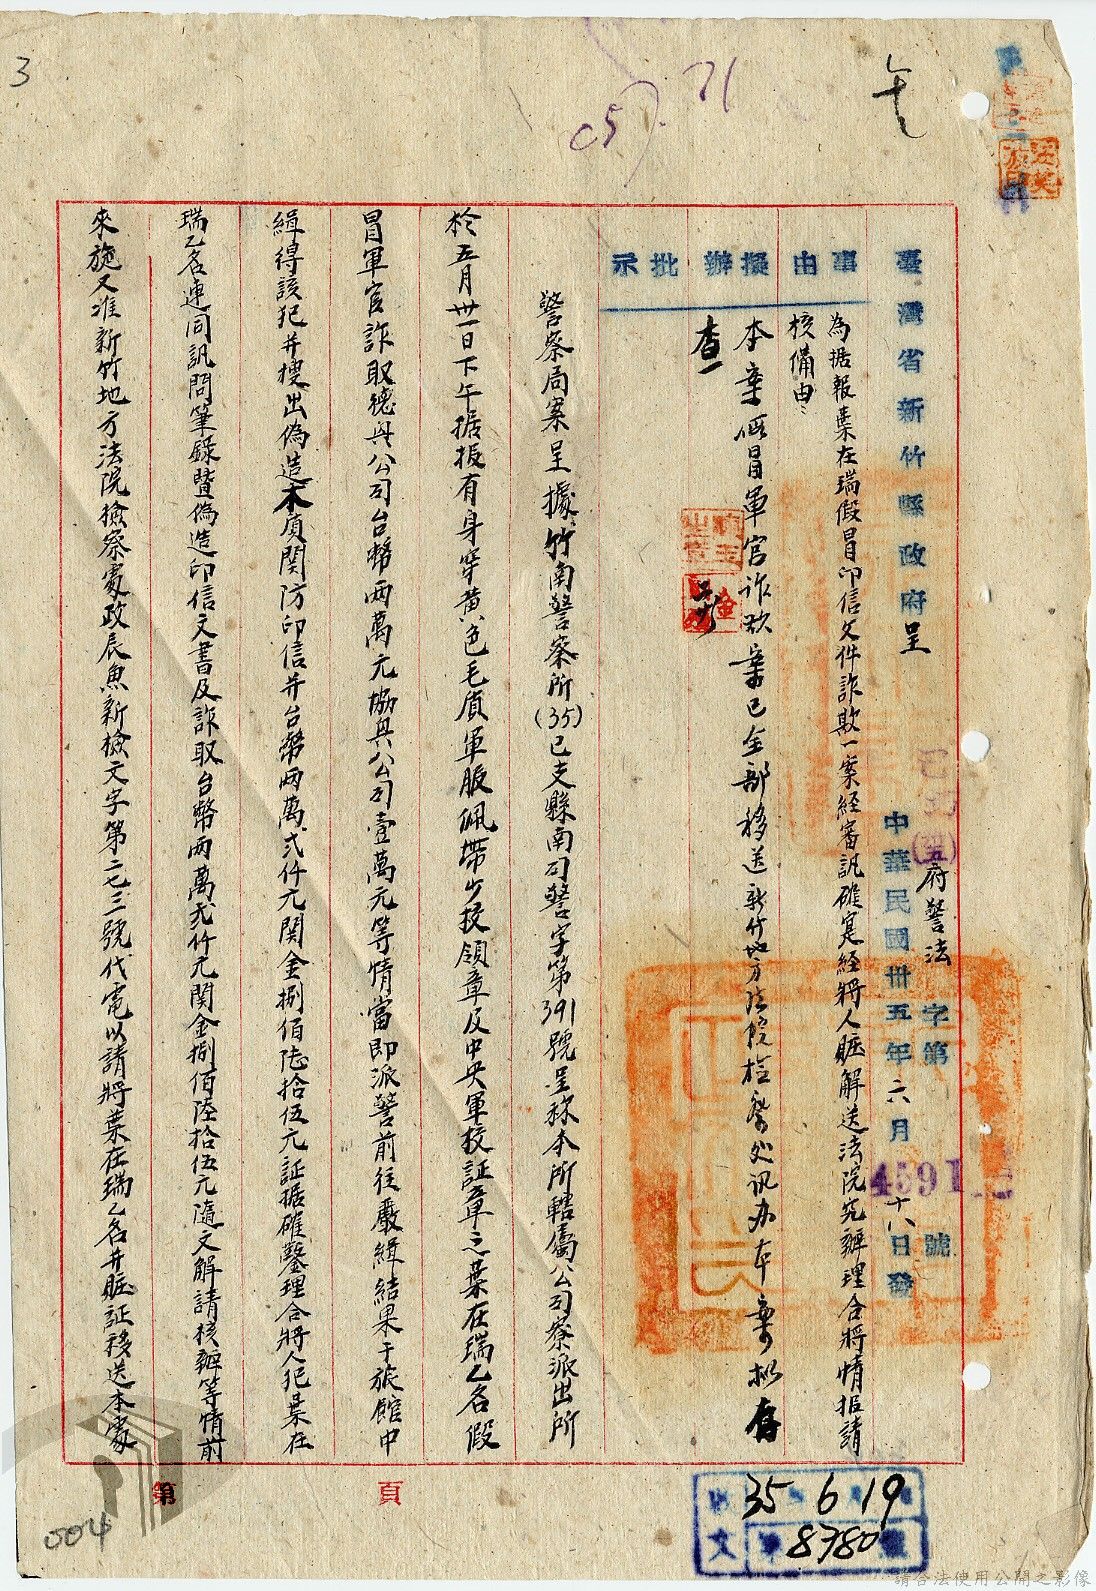 3
(5). 71
臺灣省新竹縣政府呈
府警法字第4591號
中華民國卅五年六月十八日發
事由
擬辦
批示
為据報葉在瑞假冒印信文件詐欺一案經審訊確寔經將人賍解送法院究辦理合將情报請
核備由
本案假冒軍官詐欺案已全部移送新竹地方法院检察处讯办本案拟存
查
警察局案呈據竹南警察所(35)已支縣南司警字第391號呈称本所轄屬公司寮派出所
於五月卅一日下午据报有身穿黄色毛質軍服佩带少校領章及中央軍校証章之葉在瑞乙名假
冒軍官詐取德興公司台幣两萬元協興公司壹萬元等情當即派警前往嚴緝結果于旅館中
緝得該犯并搜出偽造木質関防印信并台幣两萬弍仟元関金捌佰陸拾伍元証据確鑿理合將人犯葉在
瑞乙名連同訊問筆錄暨偽造印信文書及詐取台幣两萬弍仟元関金捌佰陸拾伍元隨文解請核辦等情前
來施又准新竹地方法院檢察處政辰魚新檢文字第二七三號代電以請將葉在瑞乙名并賍証移送本處
第
頁
004
收
35 6 19
文
8780
號
請合法使用公開之影像